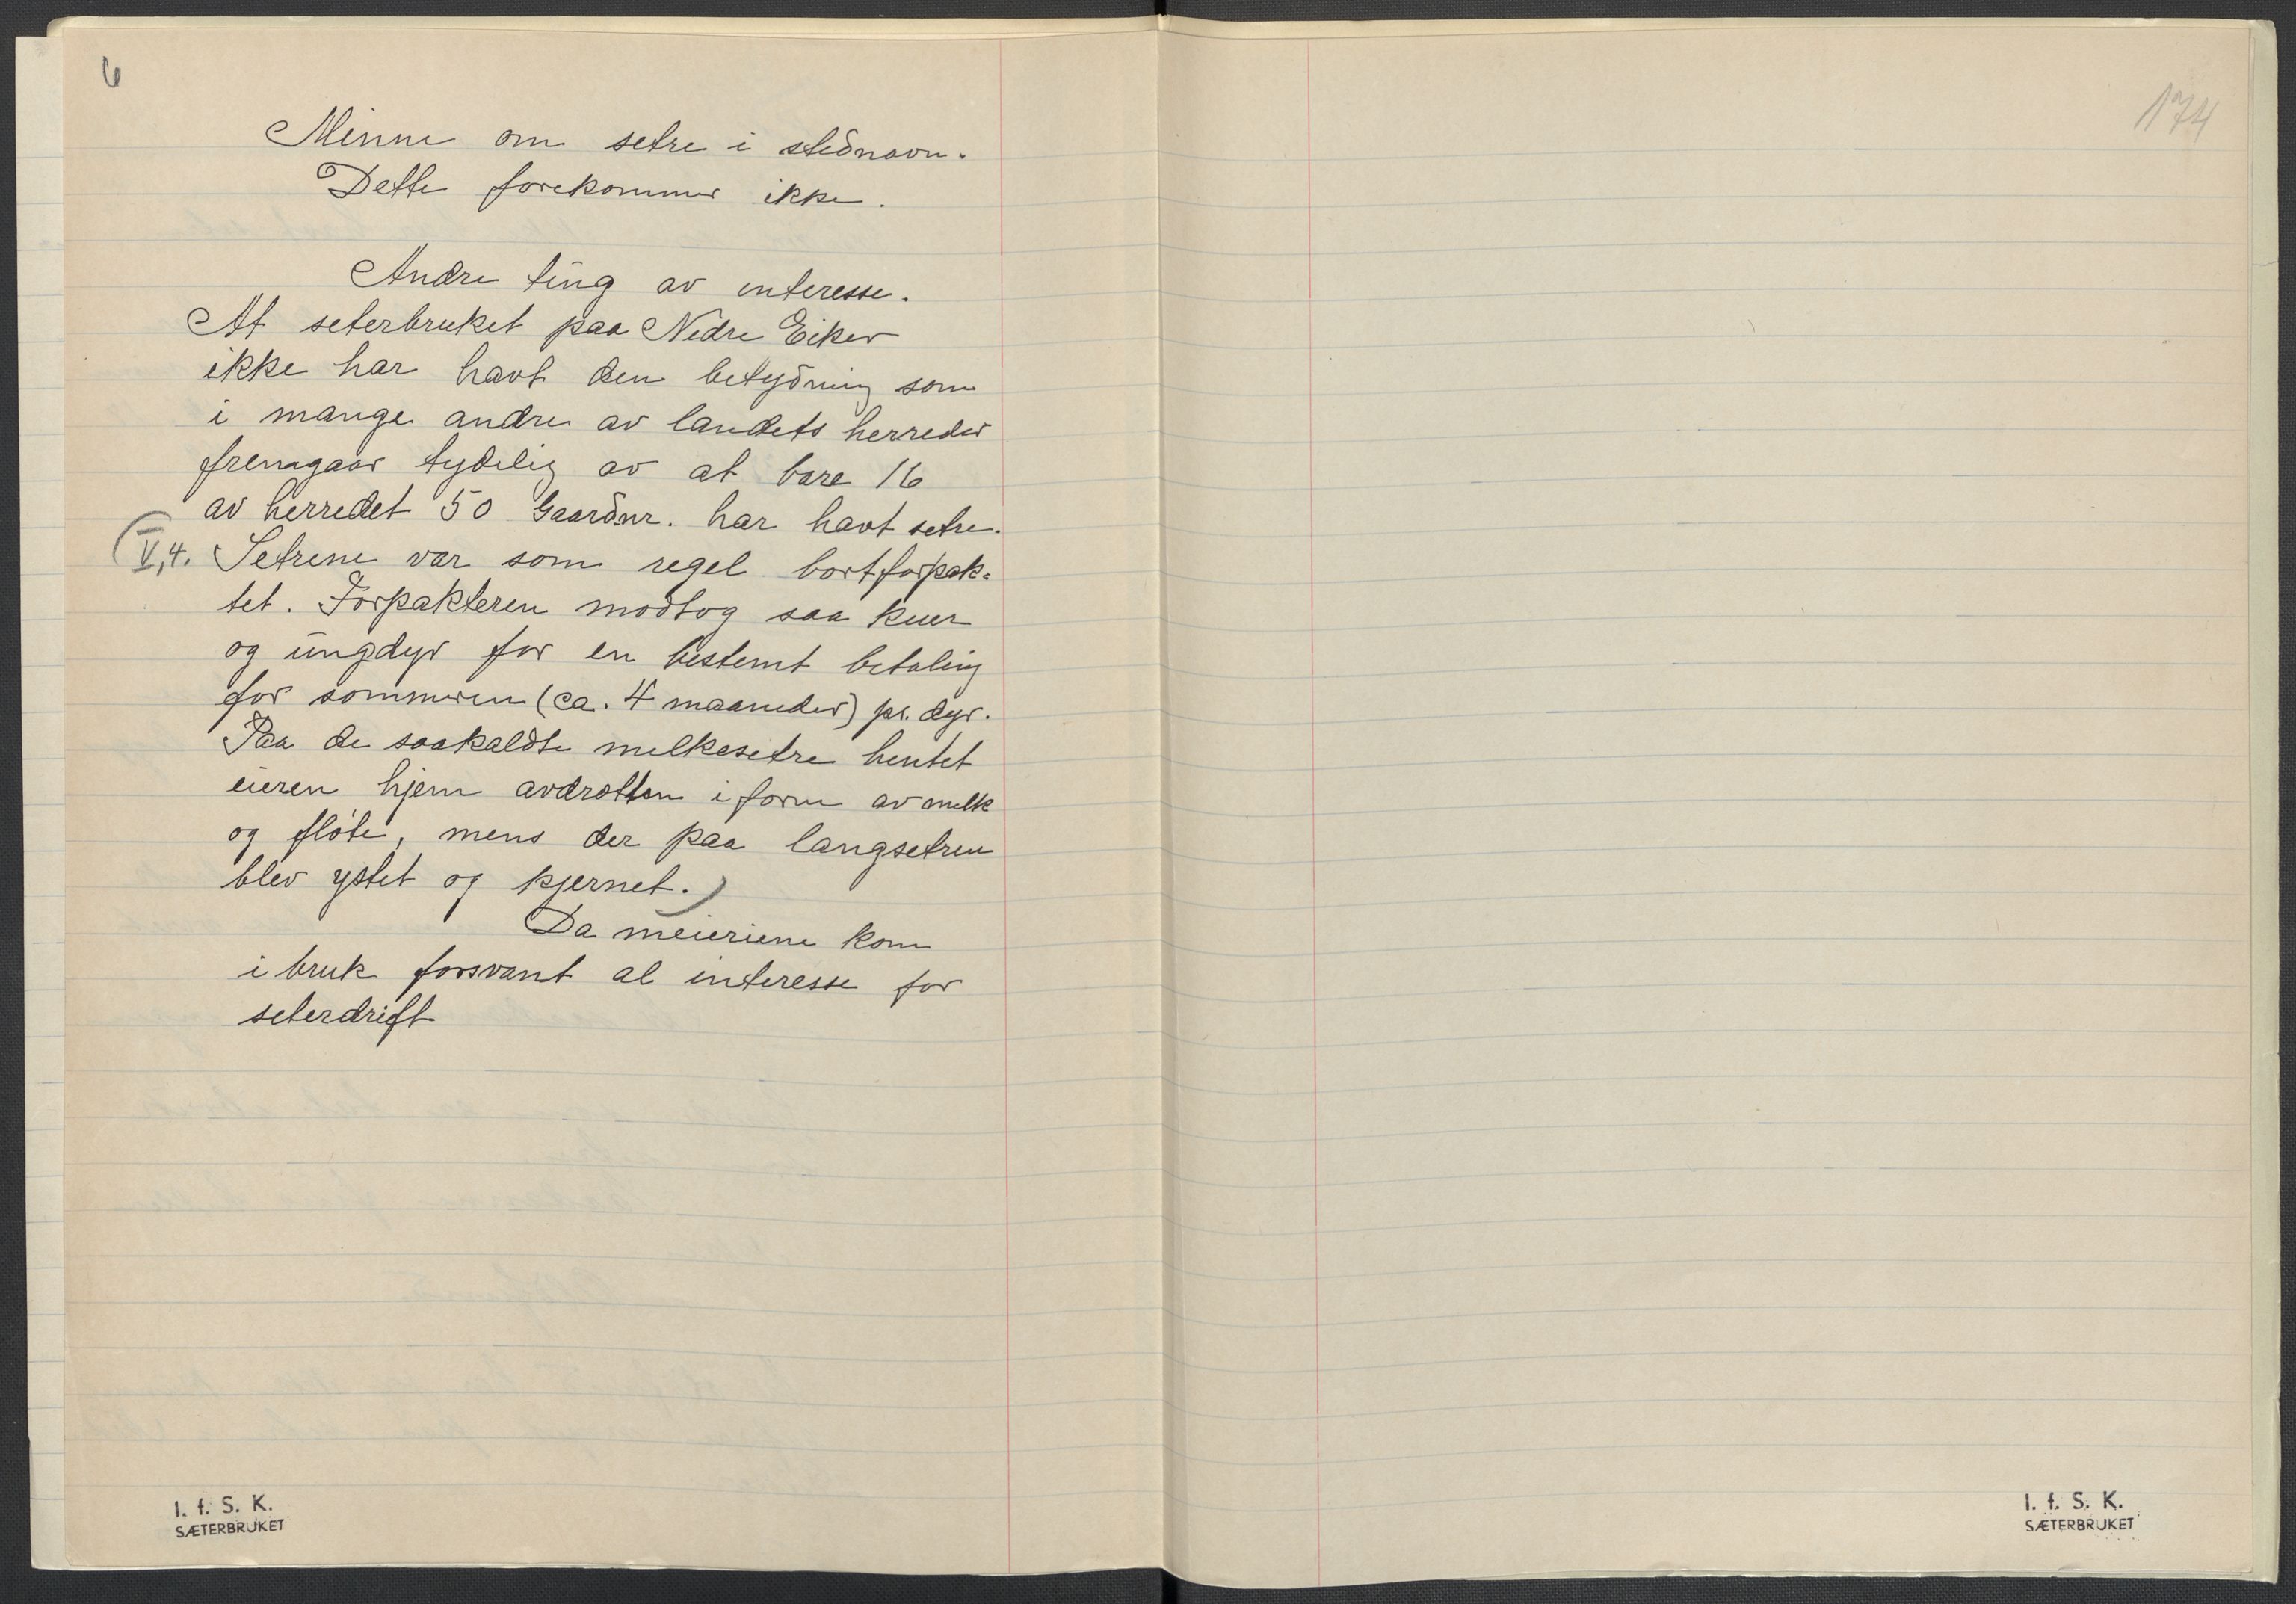 6
Minne om setre i stednavn.
Dette forekommer ikke.
Andre ting av interesse.
At seterbruket paa Nedre Eiker
ikke har havt den betydning som
i mange andre av landets herreder
fremgaar tydelig av at bare 16
av herredet 50 Gaardnr. har havt setre.
(V,4. Setrene var som regel bortforpak=
tet. Forpakteren modtog saa kuer
og ungdyr for en bestemt betaling
for sommeren (ca. 4 maaneder) pr. dyr.
Paa de saakaldte melkesetre hentet
eieren hjem avdrotten i form av melk
og fløte, mens der paa langsetren
blev ystet og kjernet.)
Da meieriene kom
i bruk forsvant al interesse for
seterdrift
I. f. S. K.
SÆTERBRUKET
174
I. f. S. K.
SÆTERBRUKET